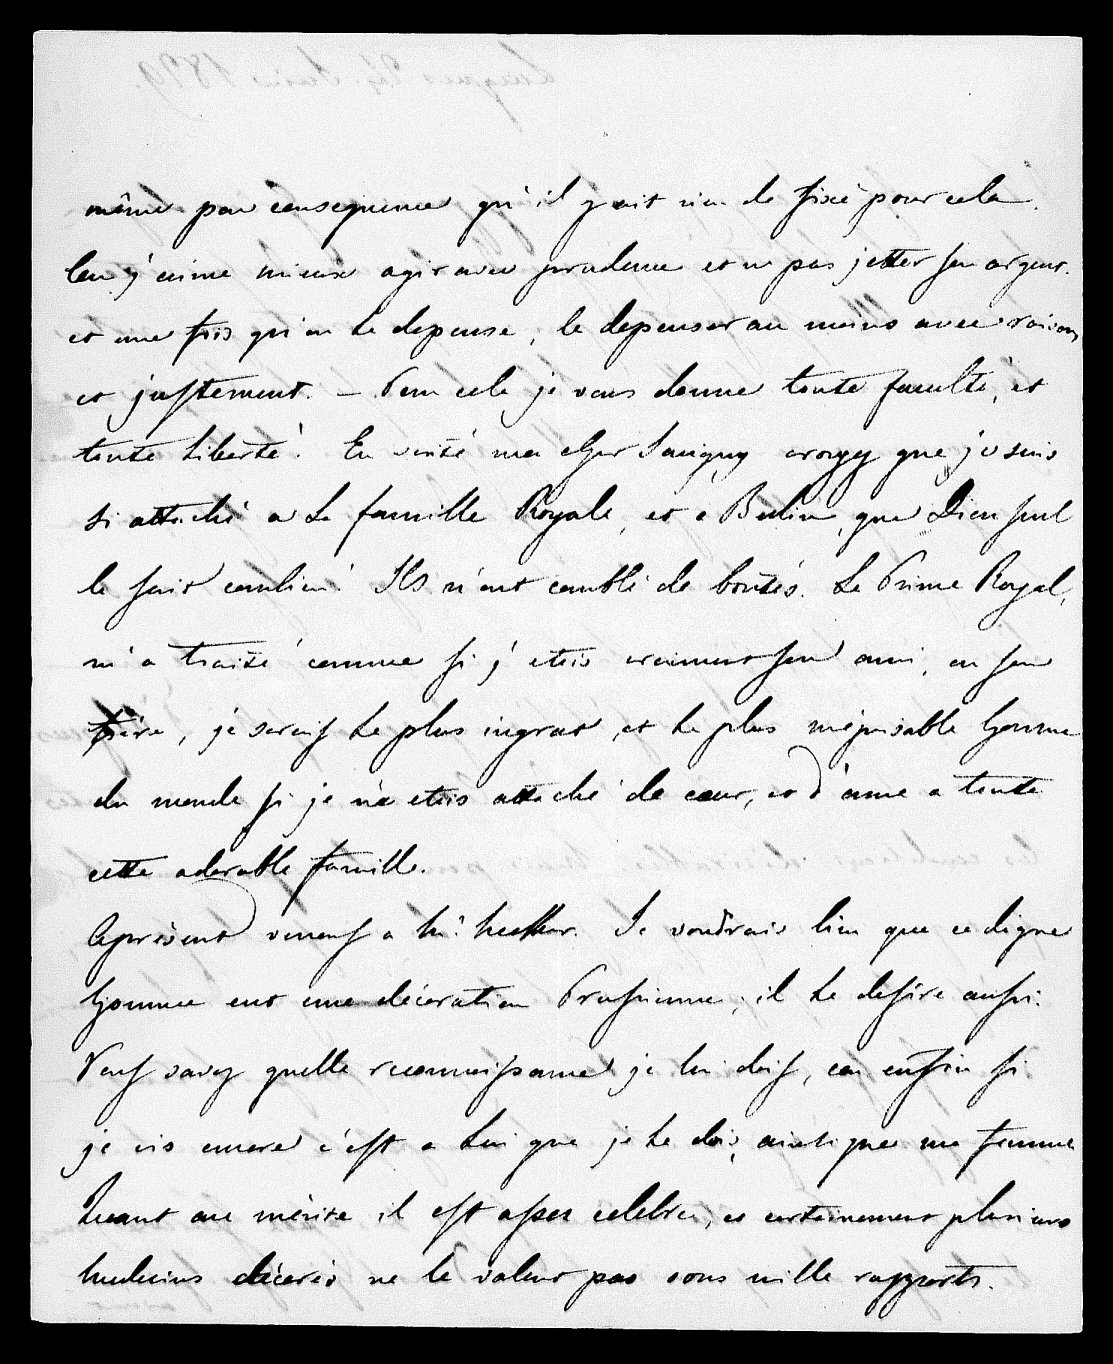 même par consequence qu'il y ait rien de fixé pour cela.
Car j'aime mieux agir avec prudence et ne pas jetter son argent.
et une fois qu'on le depense, le depenser au moins avec raison
et justement. — Pour cela je vous donne toute faculté, et
toute liberté. En verité mon cher Savigny croyez que je suis
si attaché a la famille Royale, et a Berlin, que Dieu seul
le sait combien! Ils m'ont comblé de bontés. Le Prince Royal,
m'a traité comme si j'etais vraiment son ami, ou son
frère, je serais le plus ingrat, et le plus méprisable homme
du monde si je n'e etais attaché de cœur, et d'ame a toute
cette adorable famille.
Apresent venons a Mr. Je voudrais bien que ce digne
homme eut une décoration Prussienne, il le desire aussi.
Vous savez quelle reconnaissance je lui dois, car enfin si
je vis encore c'est a Lui que je le dois, ainsi que ma femme
Quant au mérite il est assez celebre, et certainement plusieurs
medecins décorés ne le valent pas sous mille rapports.